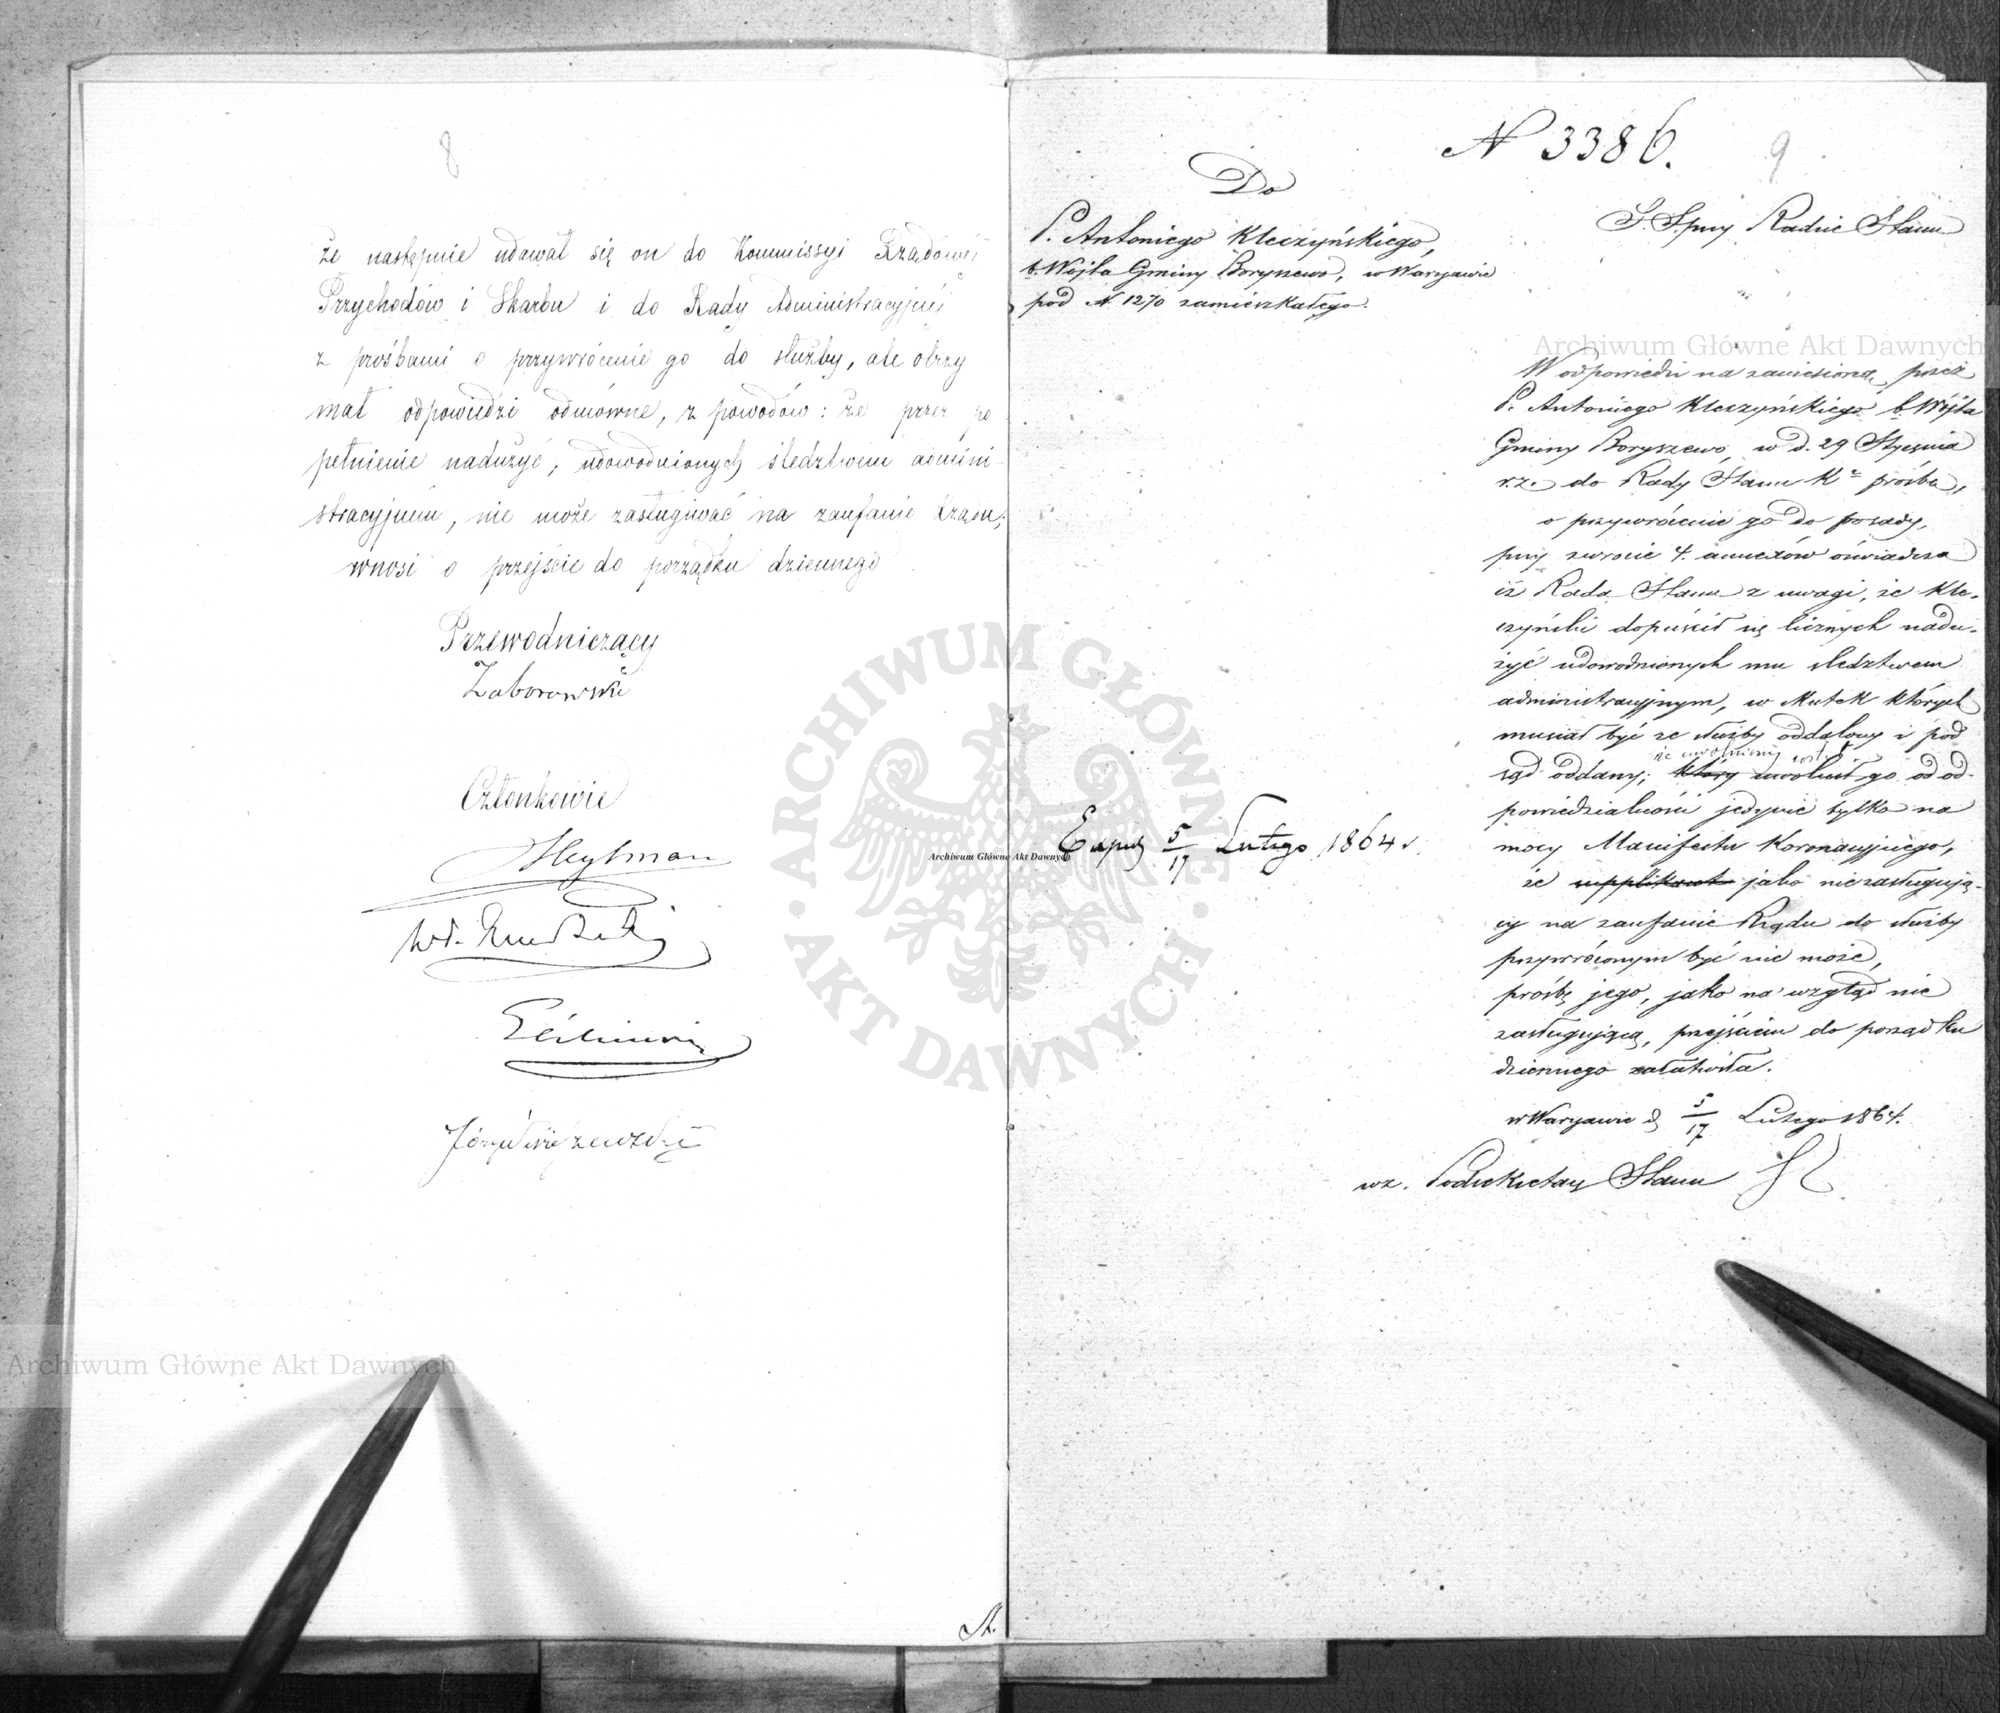 8
że następnie udawał się on do Kommissyi Rządowej
Przychodów i Skarbu i do Rady Administracyjnéj
z prośbami o przywrócenie go do służby, ale otrzy
mał odpowiedzi odmówne, z powodów: że przez po
pełnienie nadużyć, udowodnionych śledztwem admini-
stracyjném, nie może zasługiwać na zaufanie Rządu;
wnosi o przejście do porządku dziennego
Przewodniczący
Zaborowski
Członkowie
Heylman
N 3386.
9
Do
P. Antoniego Kleczyńskiego,
b. Wójta Gminy Boryszewo, w Warszawie
pod N 1270 zamieszkałego.
Radzie Stanu
W odpowiedzi na zaniesioną przez
P. Antoniego Kleczyńskiego b. Wójta
Gminy Boryszewo, w d. 29 Stycznia
r.z. do Rady Stanu Kr prośbę,
o przywrócenie go do posady,
przy zwrocie 4. annexów oświadcza
iż Rada Stanu z uwagi, że Kle-
czyński dopuścił się licznych nadu-
żyć udowodnionych mu śledztwem
administracyjnym, w skutek których
musiał być ze służby oddalony i pod
że uwolniony został
sąd oddany; który uwolnił go od od-
powiedzialności jedynie tylko na
mocy Manifestu Koronacyjnego,
że supplikant jako niezasługują-
cy na zaufanie Rządu do służby
przywróconym być nie może,
prośbę jego, jako na wzgląd nie
zasługującą, przejściem do porządku
dziennego załatwiła.
w Warszawie d 5/17 Lutego 1864.
wz. Podsekretarz Stanu
Exped 5/17 Lutego 1864 r.
Archiwum Główne Akt Dawnych
Archiwum Główne Akt Dawnych
Archiwum Główne Akt Dawnych
ARCHIWUM GŁÓWNE
AKT DAWNYCH